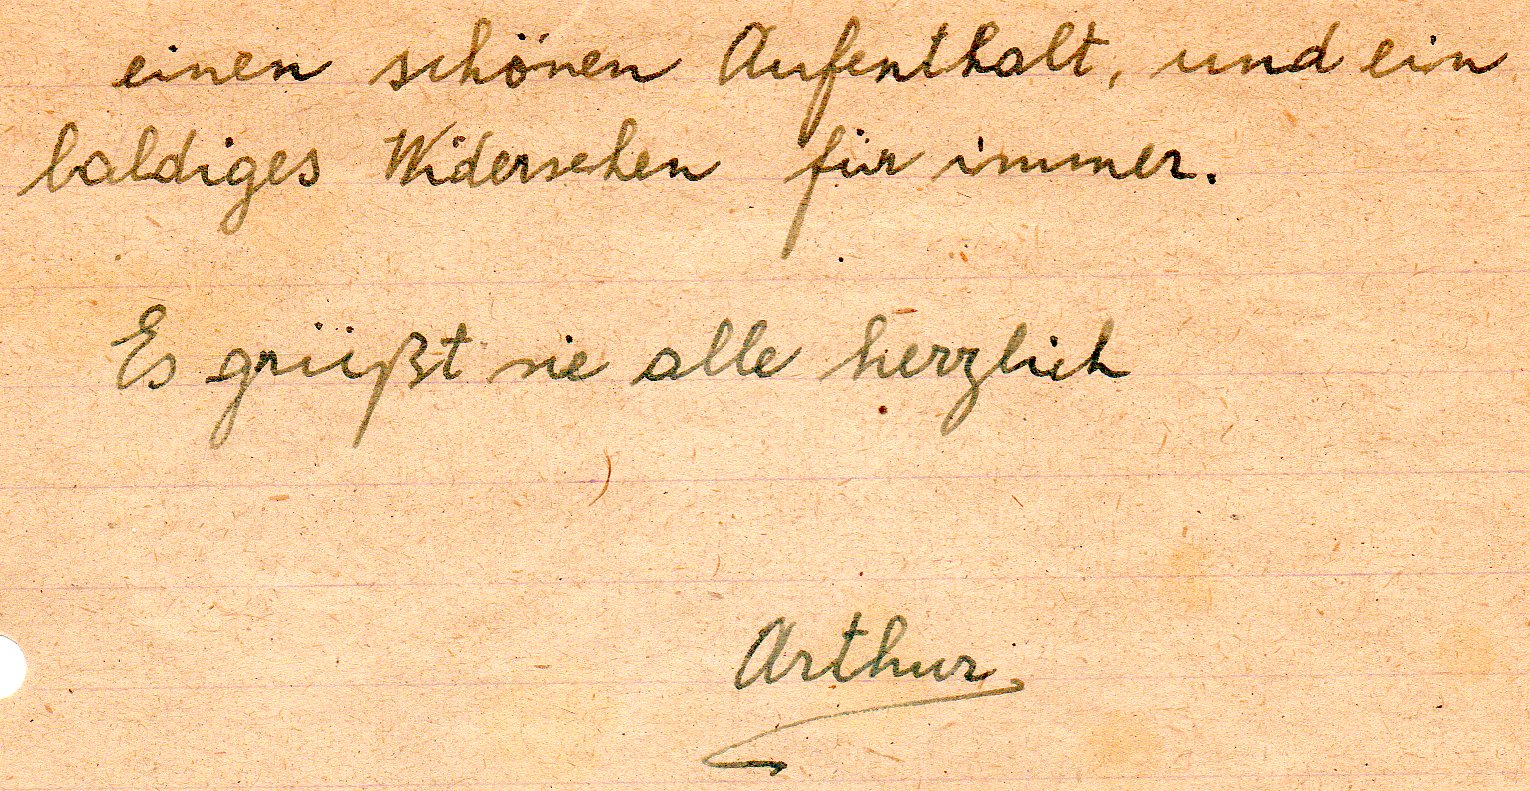 einen schönen Aufenthalt, und ein
baldiges Widersehen für immer.
Es grüßt sie alle herzlich
Arthur